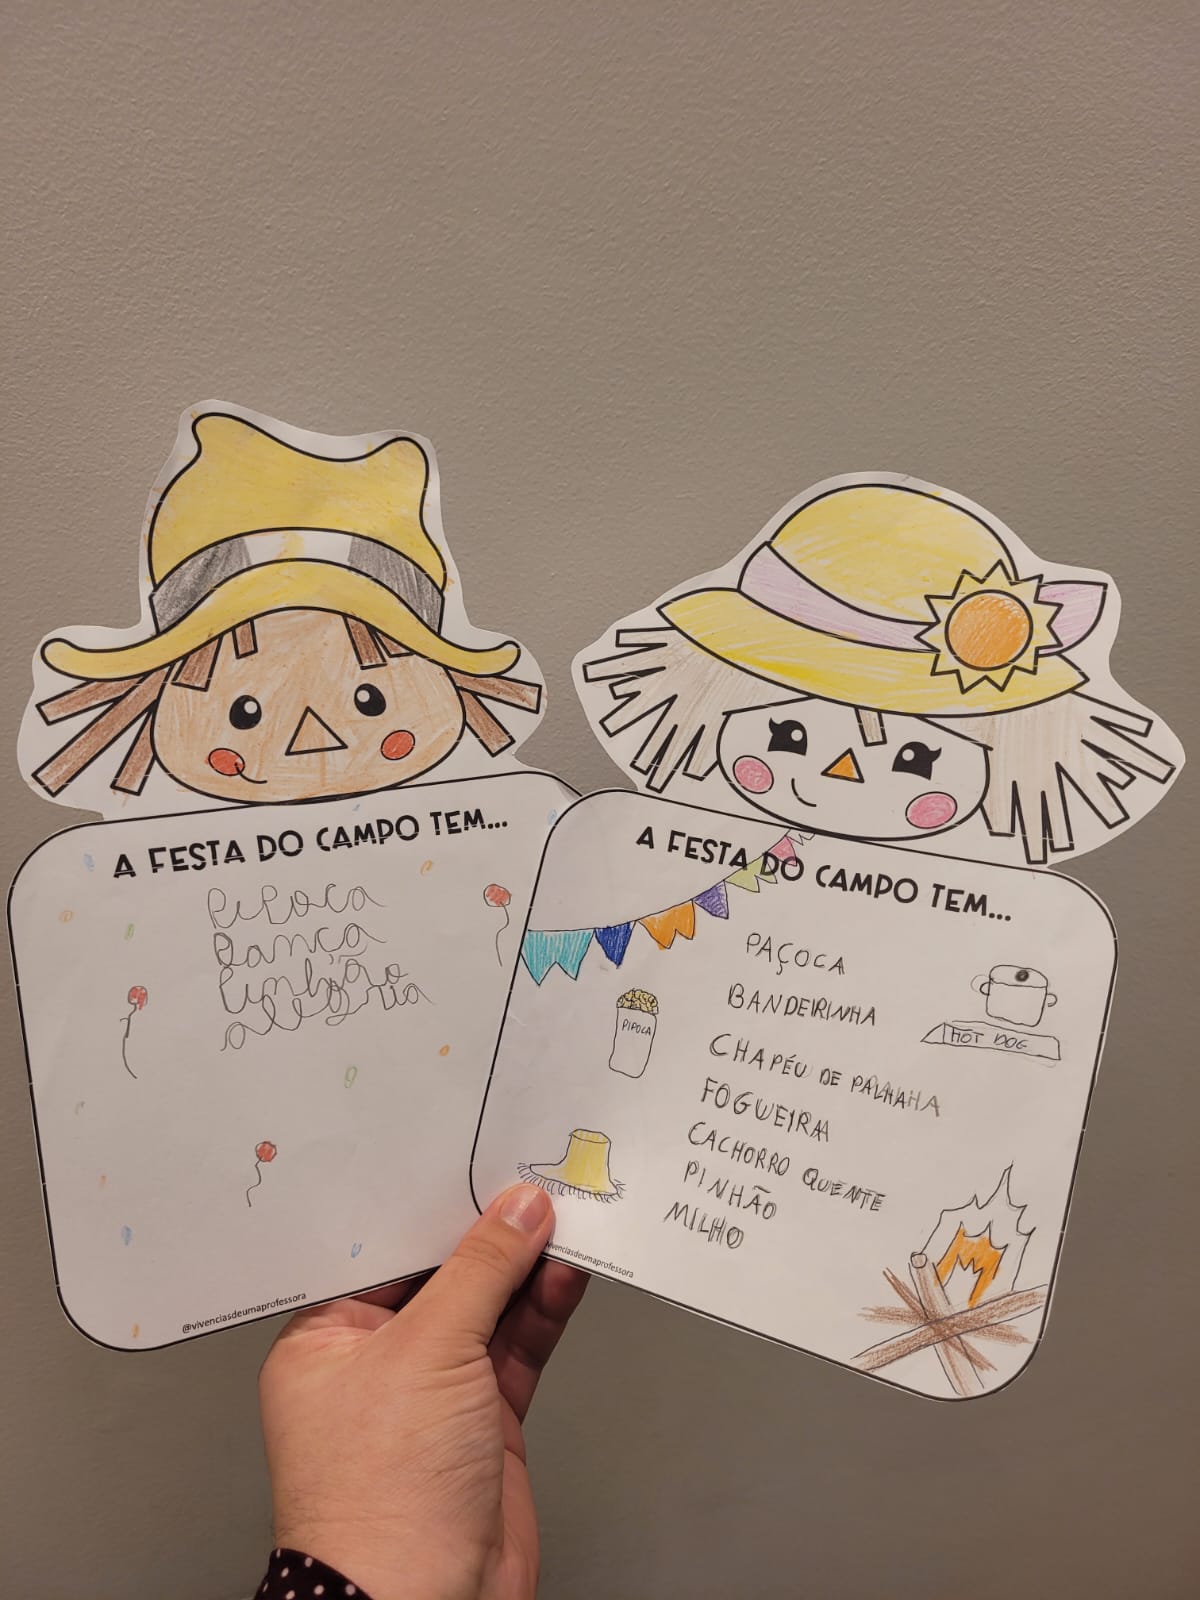 A FESTA DO CAMPO TEM...
Pipoca
Dança
Pinhão
alegria
@vivenciasdeumaprofessora
A FESTA DO CAMPO TEM...
PAÇOCA
BANDEIRINHA
CHAPÉU DE PALHA
FOGUEIRA
CACHORRO QUENTE
PINHÃO
MILHO
PIPOCA
HOT DOG
vivenciasdeumaprofessora